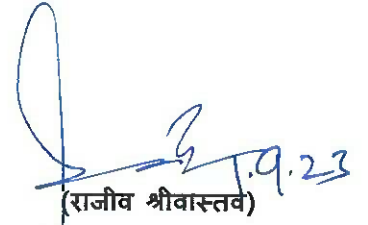 1.9.23
(राजीव श्रीवास्तव)